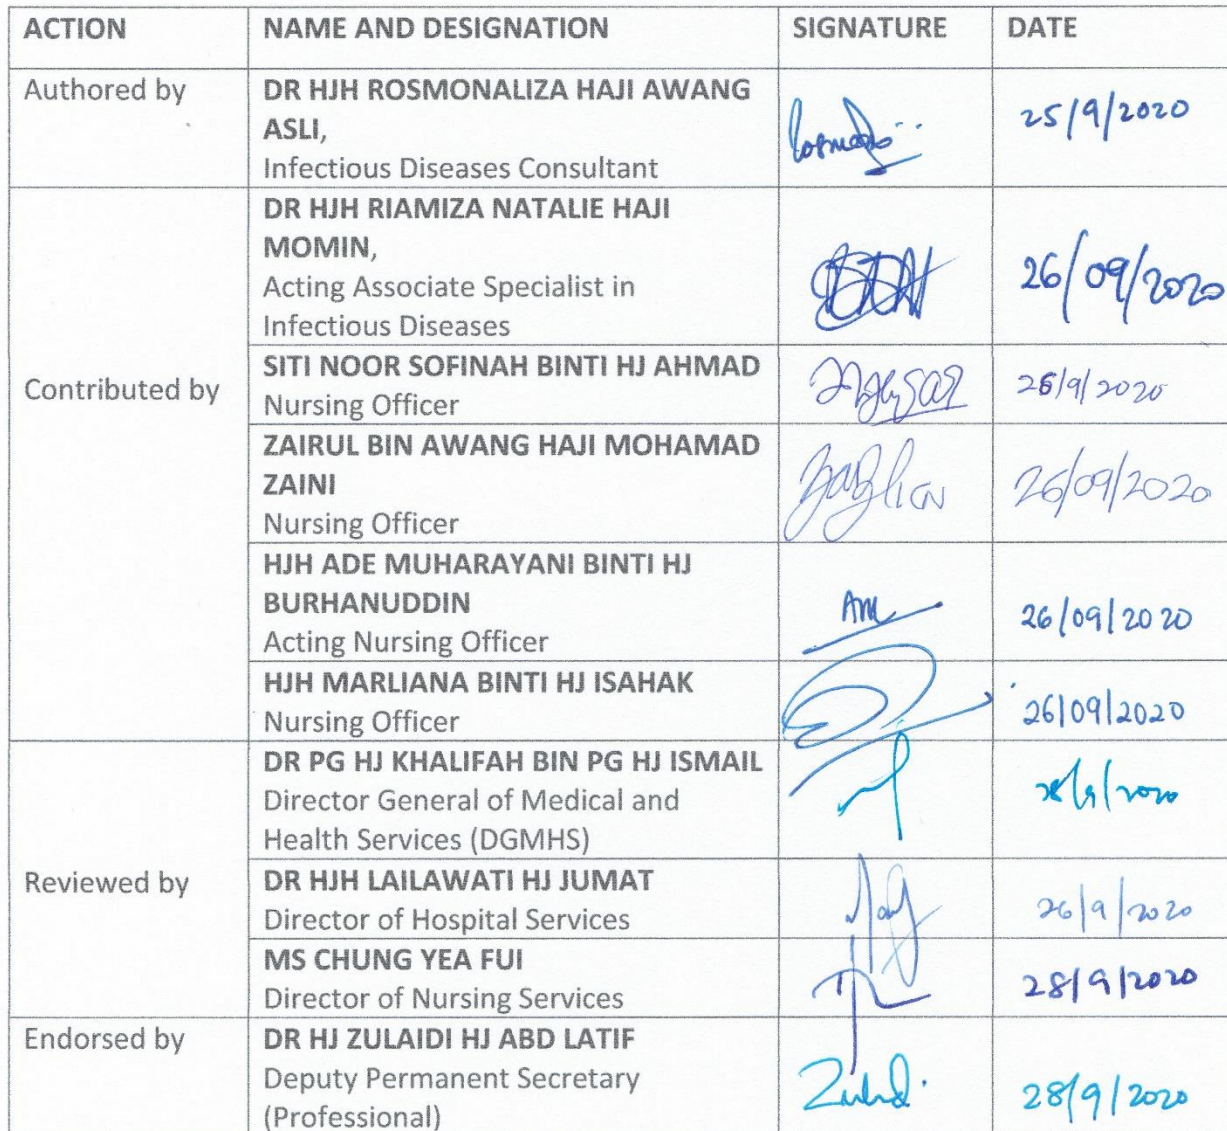 ACTION NAME AND DESIGNATION SIGNATURE DATE
Authored by DR HJH ROSMONALIZA HAJI AWANG 25/9/2020
ASLI,
Infectious Diseases Consultant
Contributed by DR HJH RIAMIZA NATALIE HAJI
MOMIN,
Acting Associate Specialist in 26/09/2020
Infectious Diseases
SITI NOOR SOFINAH BINTI HJ AHMAD
Nursing Officer
ZAIRUL BIN AWANG HAJI MOHAMAD
ZAINI 26/09/2020
Nursing Officer
HJH ADE MUHARAYANI BINTI HJ
BURHANUDDIN AM 26/09/2020
Acting Nursing Officer
HJH MARLIANA BINTI HJ ISAHAK
Nursing Officer 26/09/2020
Reviewed by DR PG HJ KHALIFAH BIN PG HJ ISMAIL
Director General of Medical and 28/9/2020
Health Services (DGMHS)
DR HJH LAILAWATI HJ JUMAT
Director of Hospital Services 26/9/2020
MS CHUNG YEA FUI
Director of Nursing Services 28/9/2020
Endorsed by DR HJ ZULAIDI HJ ABD LATIF
Deputy Permanent Secretary
(Professional) 28/9/2020